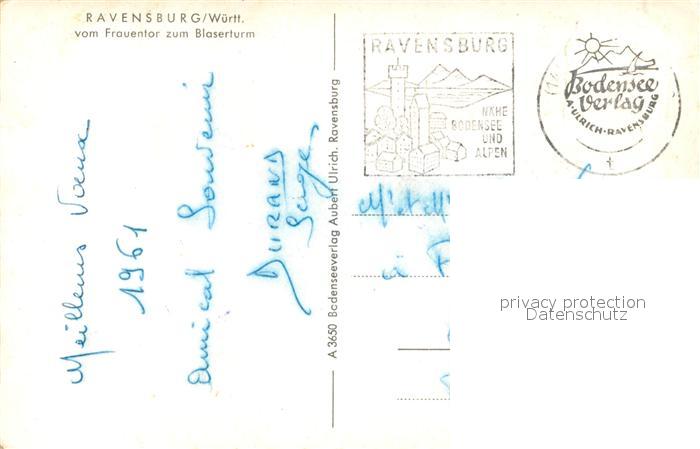 RAVENSBURG/Württ.
vom Frauentor zum Blaserturm
Meilleurs Voeux
1961
Amical Souvenir
DURAND
Serge
A 3650 Bodenseeverlag Aubert Ulrich, Ravensburg
RAVENSBURG
NÄHE
BODENSEE
UND
ALPEN
Bodensee
Verlag
A·ULRICH·RAVENSBURG
M' et M
privacy protection
Datenschutz